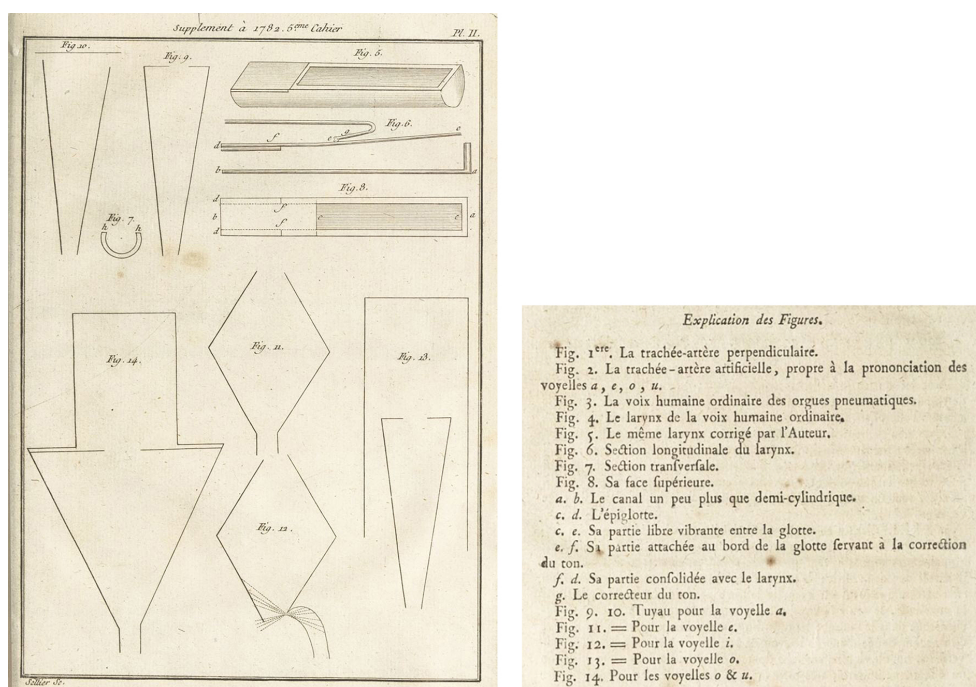 Supplement à 1782. 5.eme Cahier
Pl. II.
Fig. 10.
Fig. 9.
Fig. 5.
Fig. 6.
g
e
e
d
f
b
a
Fig. 8.
Fig. 7.
h
h
d
f
b
e
e
a
f
d
Fig. 14.
Fig. 11.
Fig. 13.
Fig. 12.
Sellier Sc.
Explication des Figures.
Fig. 1ere. La trachée-artère perpendiculaire.
Fig. 2. La trachée-artère artificielle, propre à la prononciation des
voyelles a, e, o, u.
Fig. 3. La voix humaine ordinaire des orgues pneumatiques.
Fig. 4. Le larynx de la voix humaine ordinaire.
Fig. 5. Le même larynx corrigé par l'Auteur.
Fig. 6. Section longitudinale du larynx.
Fig. 7. Section tranſverſale.
Fig. 8. Sa face ſupérieure.
a. b. Le canal un peu plus que demi-cylindrique.
c. d. L'épiglotte.
c. e. Sa partie libre vibrante entre la glotte.
e. f. Sa partie attachée au bord de la glotte ſervant à la correction
du ton.
f. d. Sa partie conſolidée avec le larynx.
g. Le correcteur du ton.
Fig. 9. 10. Tuyau pour la voyelle a.
Fig. 11. = Pour la voyelle e.
Fig. 12. = Pour la voyelle i.
Fig. 13. = Pour la voyelle o.
Fig. 14. Pour les voyelles o & u.